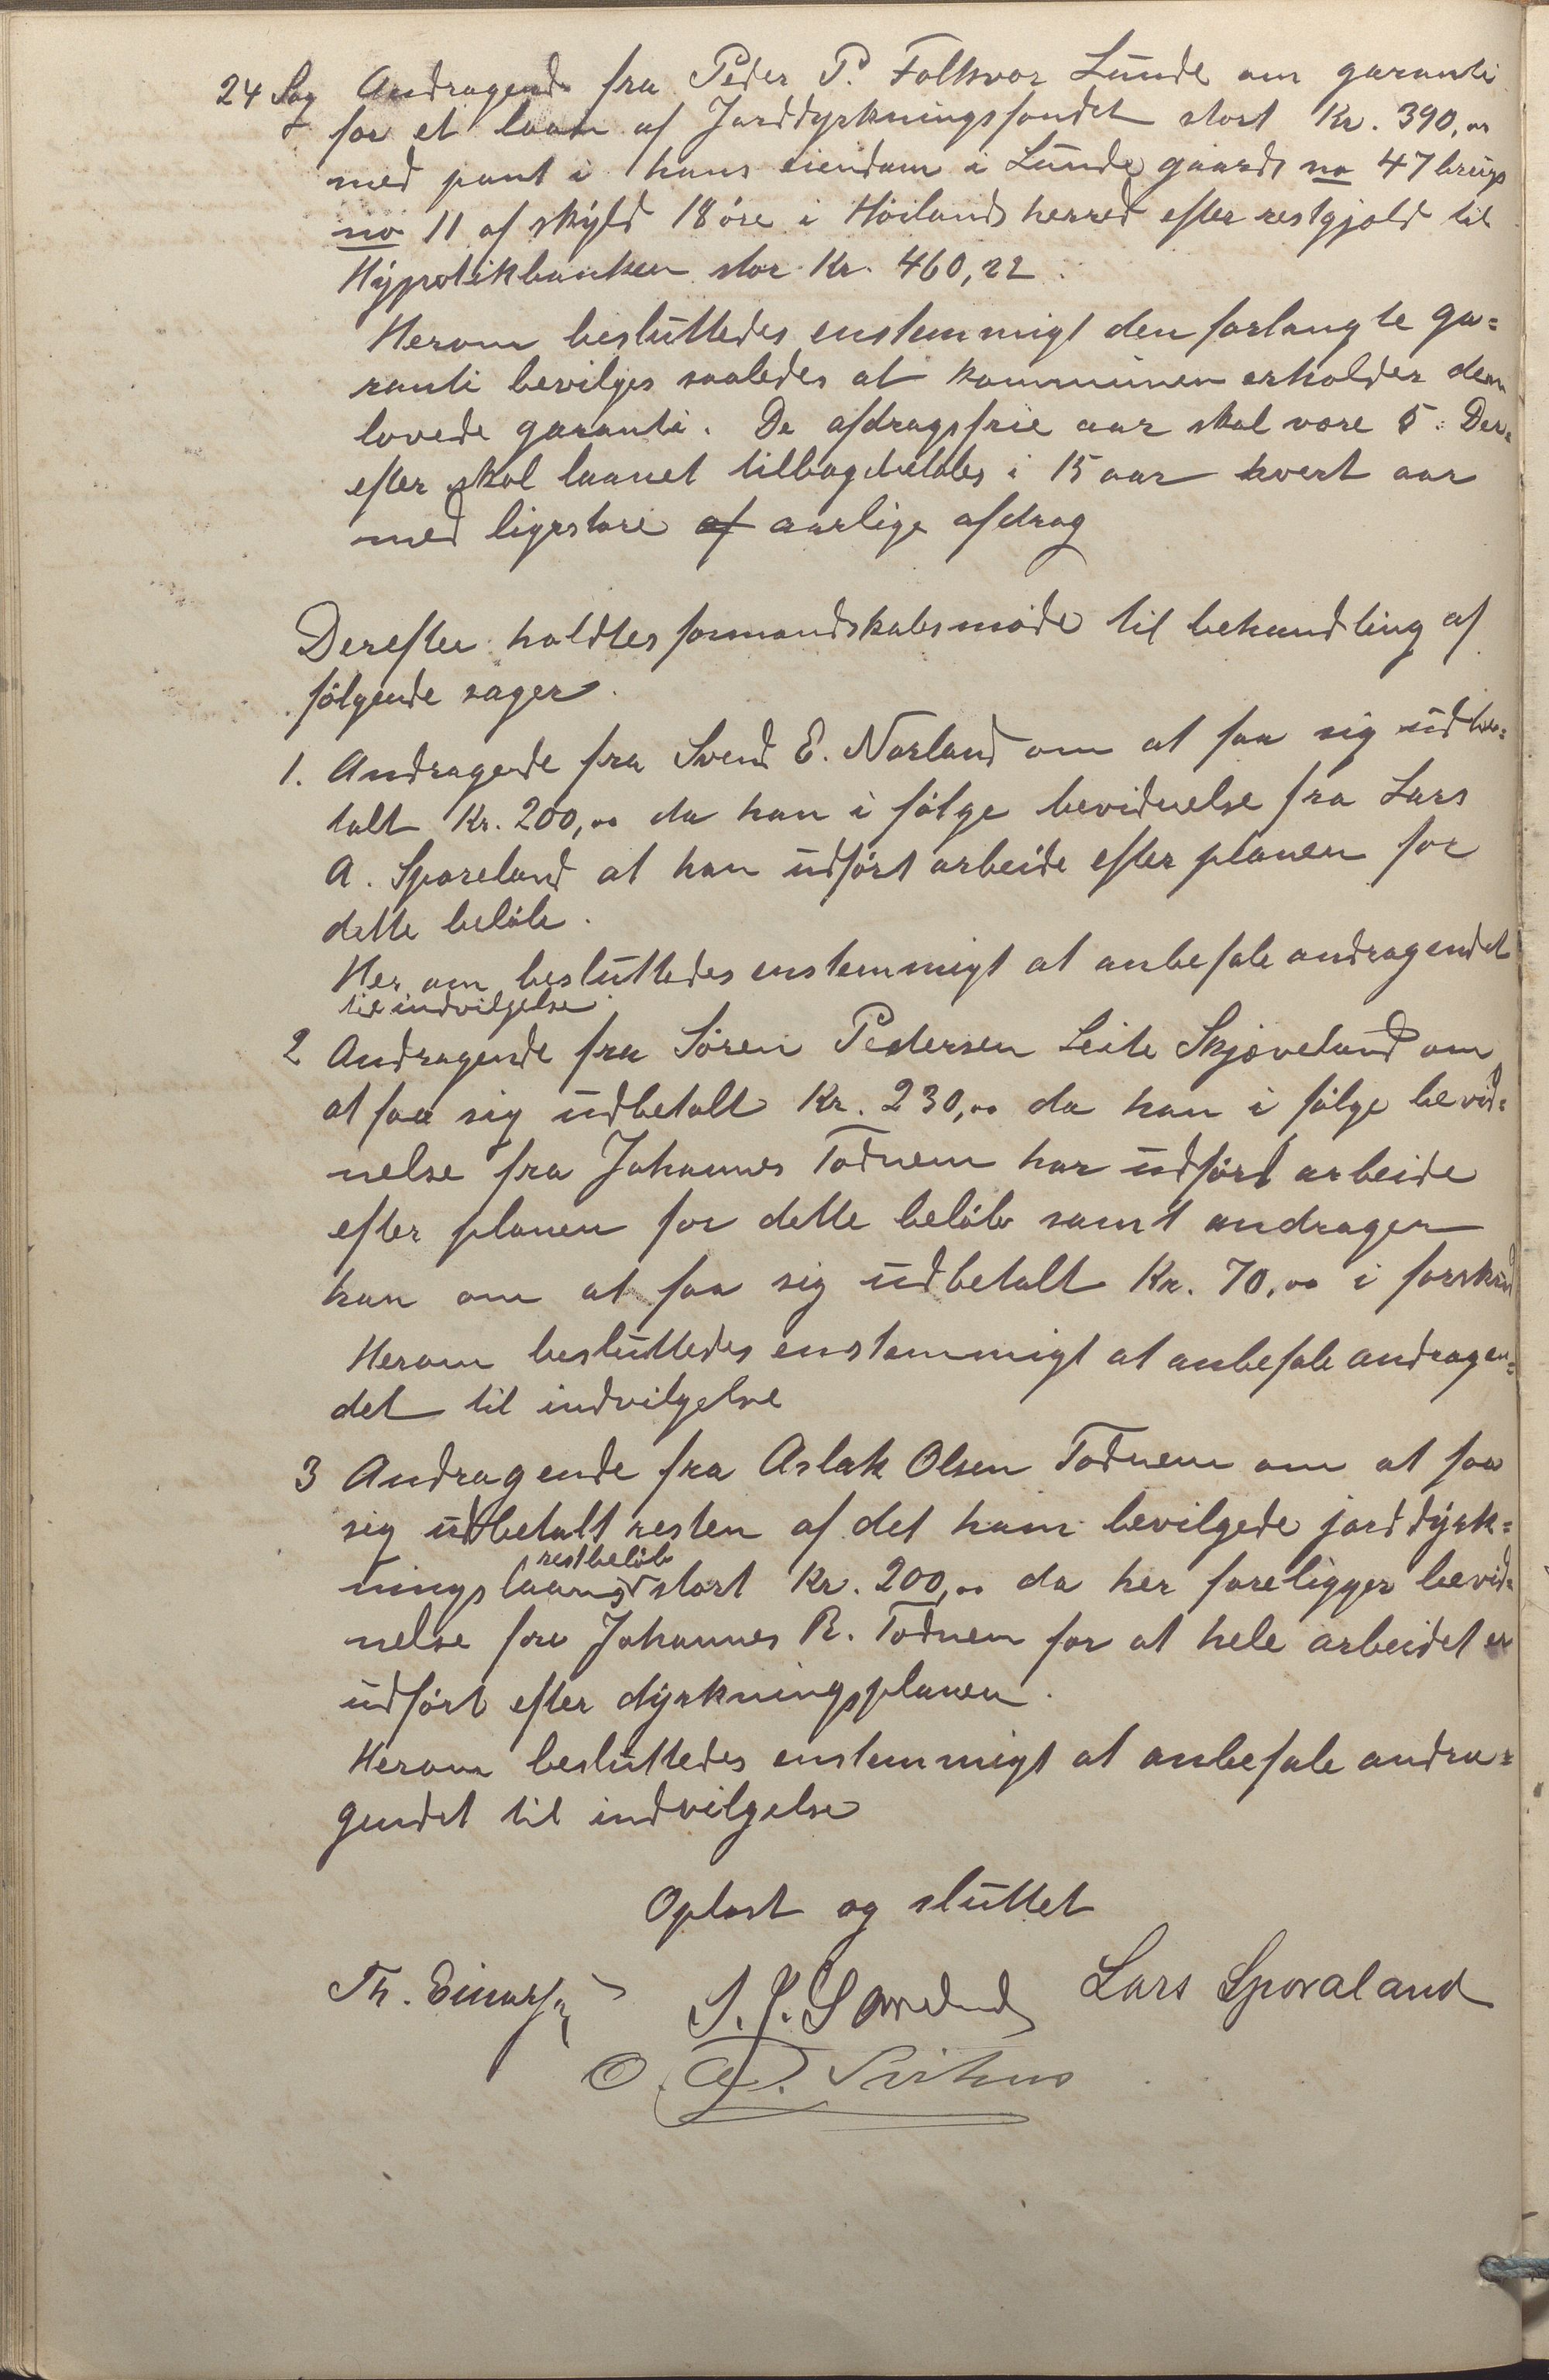 24 Sag Andragende fra Peder P. Folkvor Lunde om garanti
for et laan af Jorddyrkningsfondet stort Kr. 390,00
med pant i hans eiendom i Lunde gaards no 47 brugs
no 11 af skyld 18 øre i Høilands herred efter restgjæld til
Hypotikbanken stor Kr. 460,22.
Herom besluttedes enstemmigt den forlangte ga=
ranti bevilges saaledes at kommunen erholder den
lovede garanti. De afdragsfrie aar skal være 5. Der=
efter skal laanet tilbagebetales i 15 aar hvert aar
med ligestore af aarlige afdrag
Derefter holdtes formandskabsmøde til behandling af
følgende sager.
1. Andragende fra Svend E. Norland om at faa sig udbe=
talt Kr. 200,00 da han i følge bevidnelse fra Lars
A. Sporeland at han udført arbeide efter planen for
dette beløb.
Her om besluttedes enstemmigt at anbefale andragendet
til indvilgelse.
2 Andragende fra Søren Pedersen Leite Skjæveland om
at faa sig udbetalt Kr. 230,00 da han i følge bevid=
nelse fra Johannes Todnem har udført arbeide
efter planen for dette beløb samt andrager
han om at faa sig udbetalt Kr. 70,00 i forskud
Herom besluttedes enstemmigt at anbefale andragen=
det til indvilgelse
3 Andragende fra Aslak Olsen Todnem om at faa
sig udbetalt resten af det ham bevilgede jorddyrk=
restbeløb
ningslaans stort Kr. 200,00 da her foreligger bevid=
nelse fra Johannes R. Todnem for at hele arbeidet er
udført efter dyrkningsplanen.
Herom besluttedes enstemmigt at anbefale andra=
gendet til indvilgelse
Oplæst og sluttet
Th. Lars Sporaland